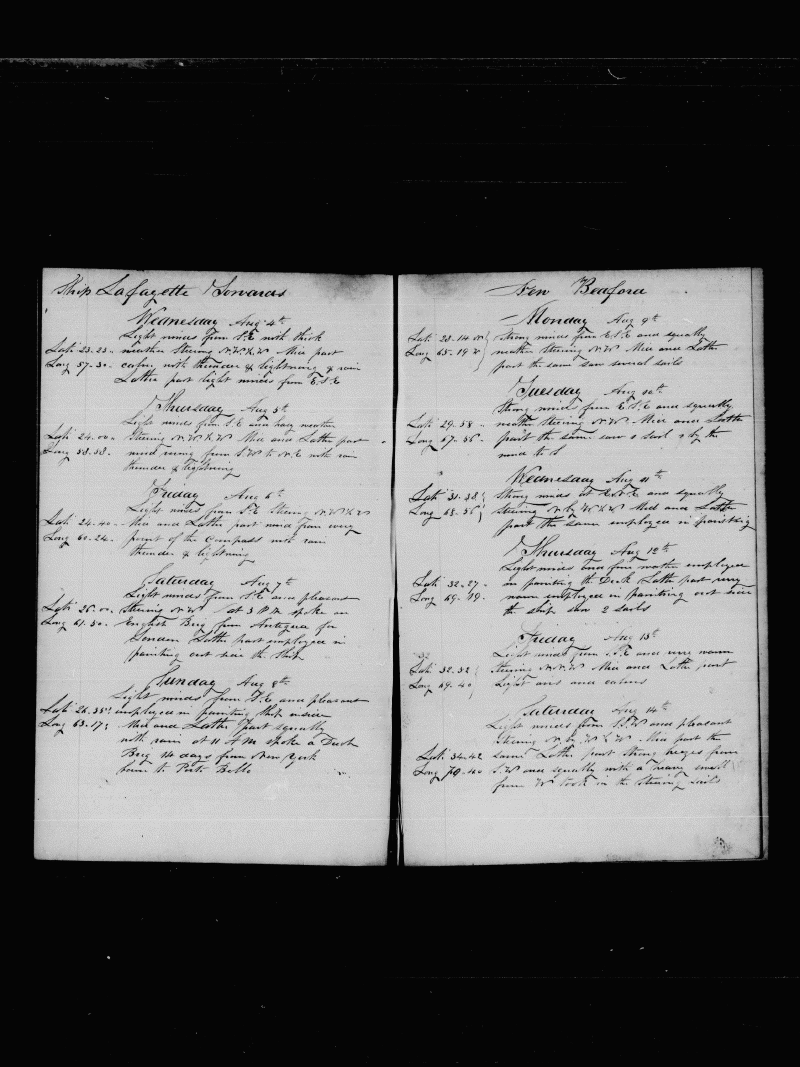 Ship Lafayette Towards
Wednesday Aug 4th
Light winds from S.E with thick
Lati 23.25 weather Steering N.W.b.W Mid part
Long 57.30 calm with thunder & lightning & rain
Latter part light winds from E.S.E
Thursday Aug 5th
Light winds from S.E and hazy weather
Lati 24.00 Steering N.W.b.W Mid and Latter part
Long 58.58 wind from S.W to N.E with rain
thunder & lightning
Friday Aug 6th
Light winds from S.E Steering N.W.b.W
Lati 24.40 Mid and Latter part wind from every
Long 60.24 point of the Compass with rain
thunder & lightning
Saturday Aug 7th
Light winds from S.E and pleasant
Lati 26.00 Steering N.W at 3 P.M spoke an
Long 61.50 English Brig from Antigua for
London Latter part employed in
painting out side the Ship
Sunday Aug 8th
Light winds from S.E and pleasant
Lati 26.35 employed in painting ship inside
Long 63.17 Mid and Latter part squally
with rain at 11 A.M spoke a Dutch
Brig 14 days from New York
bound to Porto Bello
New Bedford
Monday Aug 9th
Lati 28.14 N Strong winds from E.S.E and squally
Long 65.19 W weather Steering N.W Mid and Latter
part the same saw several sails
Tuesday Aug 10th
Strong wind from E.S.E and squally
Lati 29.58 weather Steering N.W Mid and Latter
Long 67.56 part the same saw a Sail by the
wind to S
Wednesday Aug 11th
Lati 31.38 Strong winds at E.S.E and squally
Long 68.56 Steering N.W.b.W Mid and Latter
part the same employed in painting
Thursday Aug 12th
Light winds and fine weather employed
Lati 32.27 in painting the Deck Latter part very
Long 69.19 warm employed in painting out side
the ship saw 2 Sails
Friday Aug 13th
Light winds from S.E and very warm
Lati 32.52 Steering N.N.W Mid and Latter part
Long 69.40 Light airs and calms
Saturday Aug 14th
Light winds from S.W and pleasant
Steering N.W Mid part the
Lati 34.42 same Latter part strong breezes from
Long 70.40 S.W and squally with a heavy swell
from W took in the steering sails